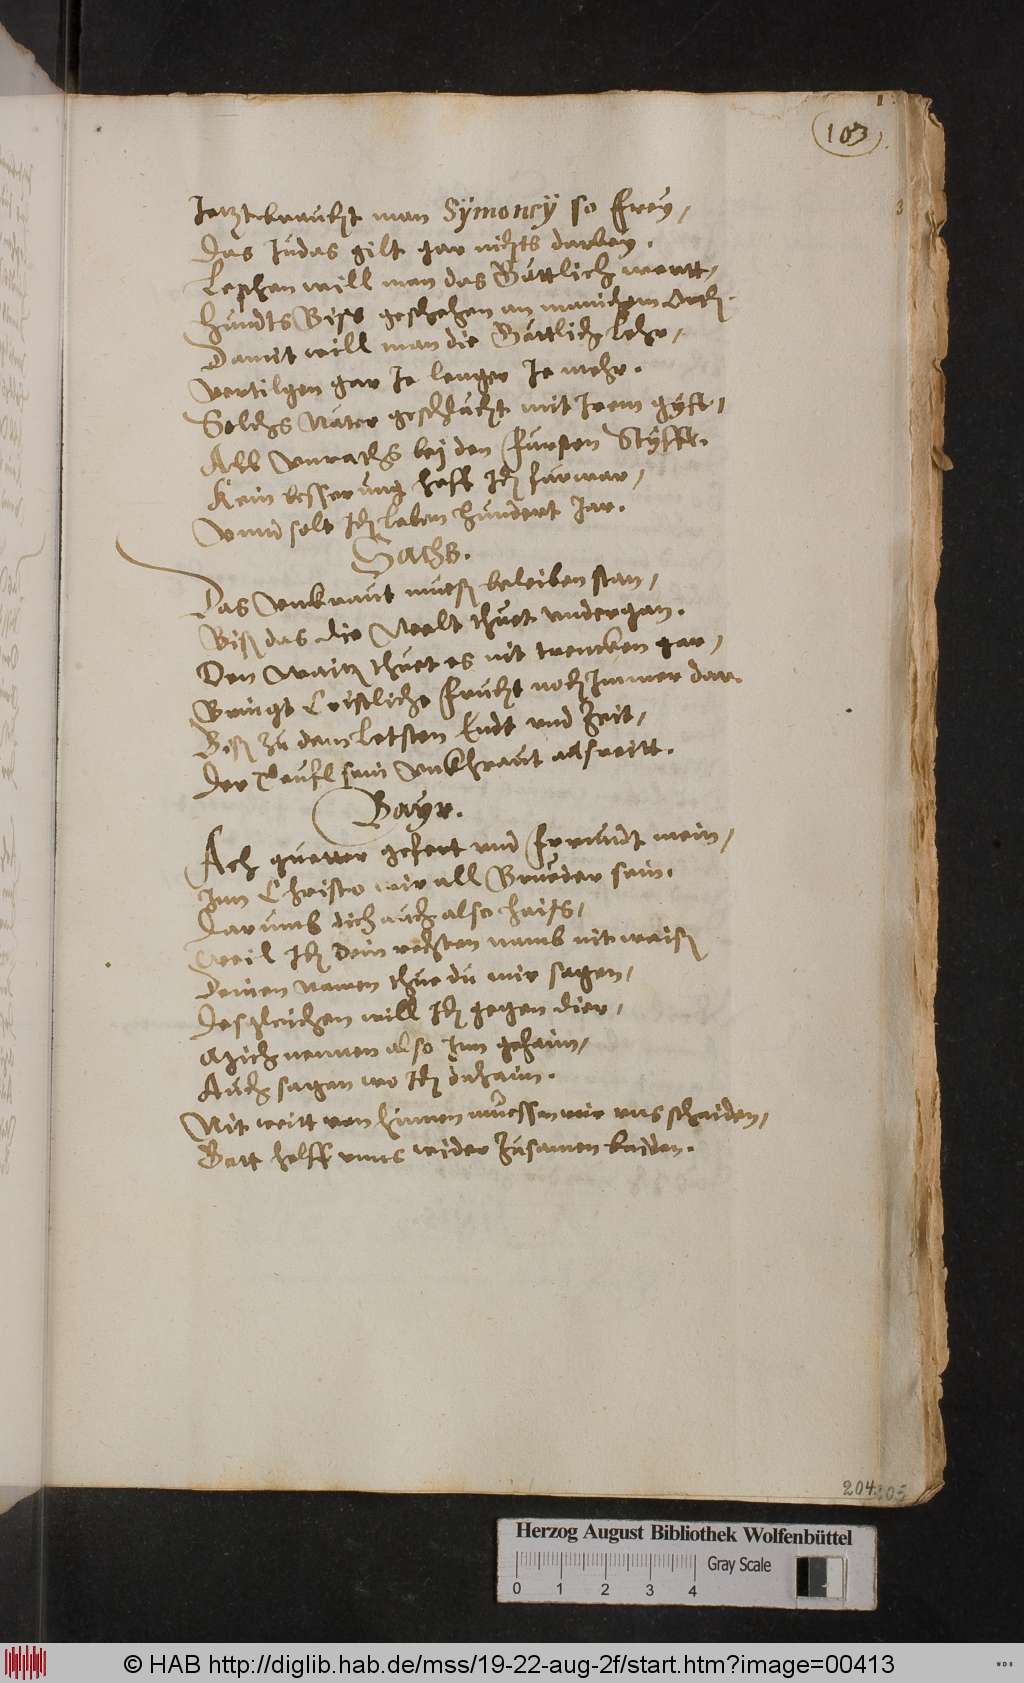 103
Jetzt braucht man Symoney so frey,
Das Judas gilt gar nichts darbey.
Leschen will man das Gottlich wortt,
Hundts Biss geschehen an manichem Orth.
Damit will man die Göttlich Lehr,
vertilgen gar Je lenger Je mehr.
Solchs Nater geschlächt mit Jrem gyft,
All vnraths bej den Fursten Styfft.
Kein besserung hoff Ich furwar,
Vnnd solt Ich leben hundert Jar.
Sachs.
Das Vnkraut muess beleiben stan,
Biss das die Weelt thuet vndergan.
Den Waitz thuet es nit trencken gar,
Bringt Cristliche frucht noch Immer dar.
Biss zu dem letsten Endt vnd Zeit,
Der Teufl sein Vnkhraut
Bayr.
Ach guetter gefert vnd Freundt mein,
Jnn Christo wir all Brueder sein.
Darumb dich auch also haiss,
Weil Ich dein rechten namb nit waiss
Deinen namen thue du mir sagen,
Desgleichen will Ich gegen dier,
Mich nennen also Jnn gehaim,
Auch sagen wo Ich dahaim.
Nit weitt von hinnen muessen wir vns schaiden,
Gott helff vnns wider Zusamen baiden.
204
Herzog August Bibliothek Wolfenbüttel
0 1 2 3 4
Gray Scale
© HAB http://diglib.hab.de/mss/19-22-aug-2f/start.htm?image=00413